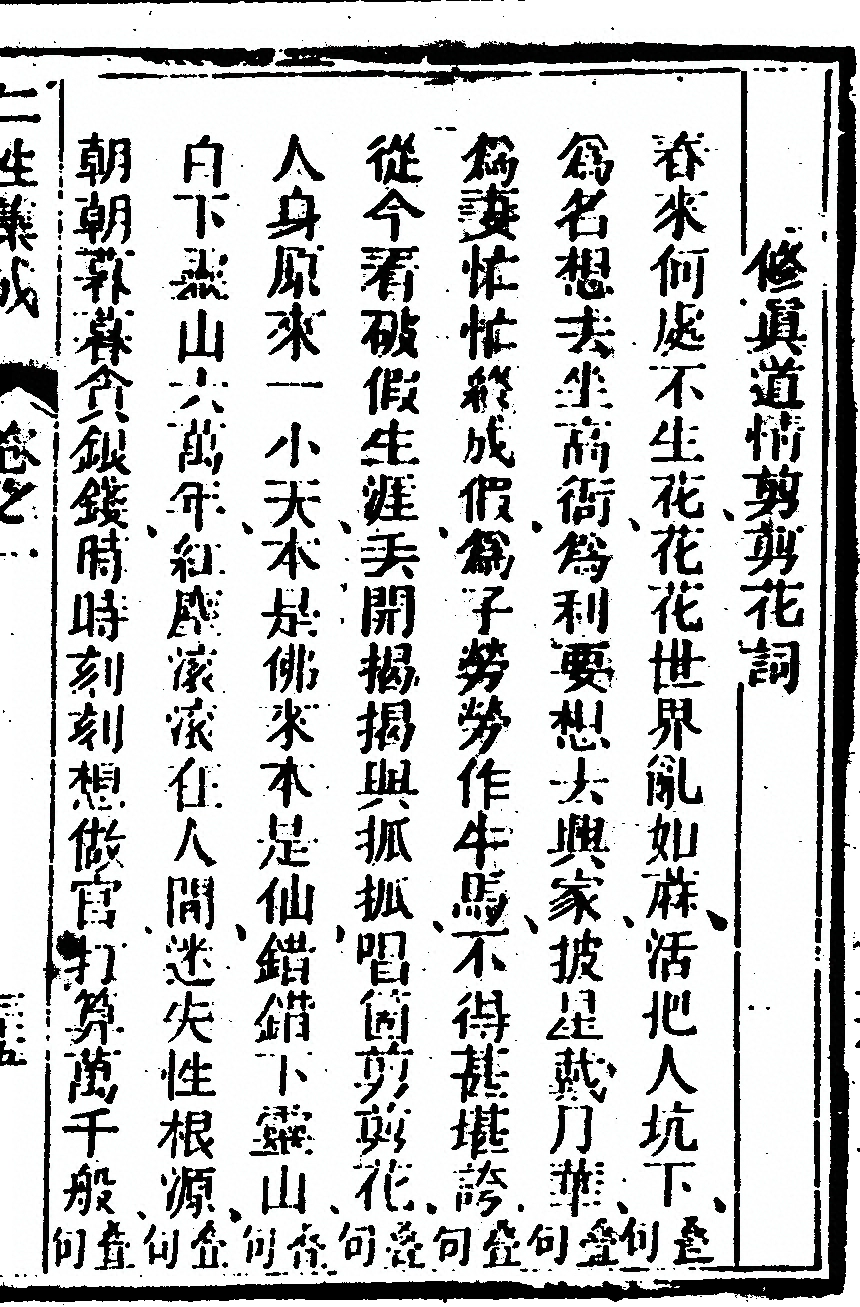 修眞道情剪剪花詞
春來何處不生花花花世界亂如蔴活把人坑下疊句
爲名想去坐高衙爲利要想去興家披星戴月華疊句
爲妻忙忙終成假爲子勞勞作牛馬不得甚堪誇疊句
從今看破假生涯丢開揭揭與抓抓唱箇剪剪花疊句
人身原來一小天本是佛來本是仙錯錯下靈山疊句
自下靈山六萬年紅塵滾滾在人間迷失性根源疊句
朝朝暮暮貪銀錢時時刻刻想做官打算萬千般疊句
卷之